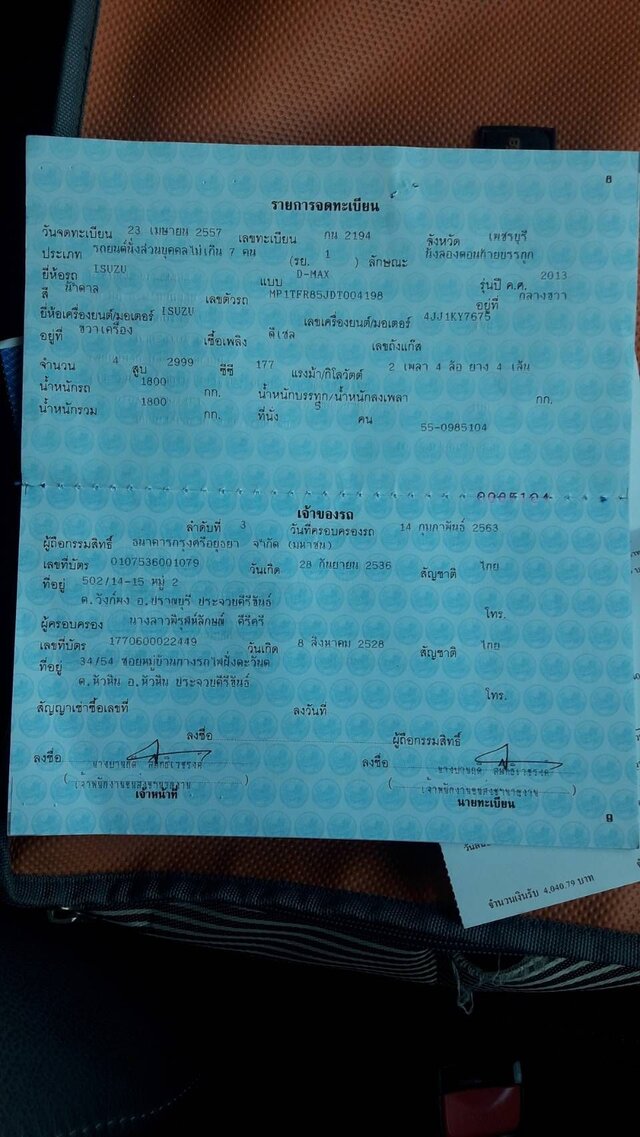 8
รายการจดทะเบียน
วันจดทะเบียน 23 เมษายน 2557 เลขทะเบียน กน 2194 จังหวัด เพชรบุรี
ประเภท รถยนต์นั่งส่วนบุคคลไม่เกิน 7 คน (รย. 1 ) ลักษณะ นั่งสองตอนท้ายบรรทุก
ยี่ห้อรถ ISUZU แบบ D-MAX รุ่นปี ค.ศ. 2013
สี น้ำตาล เลขตัวรถ MP1TFR85JDT004198 อยู่ที่ กลางขวา
ยี่ห้อเครื่องยนต์/มอเตอร์ ISUZU เลขเครื่องยนต์/มอเตอร์ 4JJ1KY7675
อยู่ที่ ขวาเครื่อง เชื้อเพลิง ดีเซล เลขถังแก๊ส
จำนวน 4 สูบ 2999 ซีซี 177 แรงม้า/กิโลวัตต์ 2 เพลา 4 ล้อ ยาง 4 เส้น
น้ำหนักรถ 1800 กก. น้ำหนักบรรทุก/น้ำหนักลงเพลา กก.
น้ำหนักรวม 1800 กก. ที่นั่ง 5 คน
55-0985104
เจ้าของรถ
ลำดับที่ 3 วันที่ครอบครองรถ 14 กุมภาพันธ์ 2563
ผู้ถือกรรมสิทธิ์ ธนาคารกรุงศรีอยุธยา จำกัด (มหาชน)
เลขที่บัตร 0107536001079 วันเกิด 28 กันยายน 2536 สัญชาติ ไทย
ที่อยู่ 502/14-15 หมู่ 2
ต.วังก์พง อ.ปราณบุรี ประจวบคีรีขันธ์ โทร.
ผู้ครอบครอง นางสาวพิรุฬห์ลักษณ์ คีรีศรี
เลขที่บัตร 1770600022449 วันเกิด 8 สิงหาคม 2528 สัญชาติ ไทย
ที่อยู่ 34/54 ซอยหมู่บ้านทางรถไฟฝั่งตะวันตก
ต.หัวหิน อ.หัวหิน ประจวบคีรีขันธ์ โทร.
สัญญาเช่าซื้อเลขที่ ลงวันที่
ลงชื่อ ผู้ถือกรรมสิทธิ์
ลงชื่อ ลงชื่อ
(เจ้าพนักงานขนส่งชำนาญงาน) (เจ้าพนักงานขนส่งชำนาญงาน)
เจ้าหน้าที่ นายทะเบียน
9
จำนวนเงินรับ 4,040.79 บาท